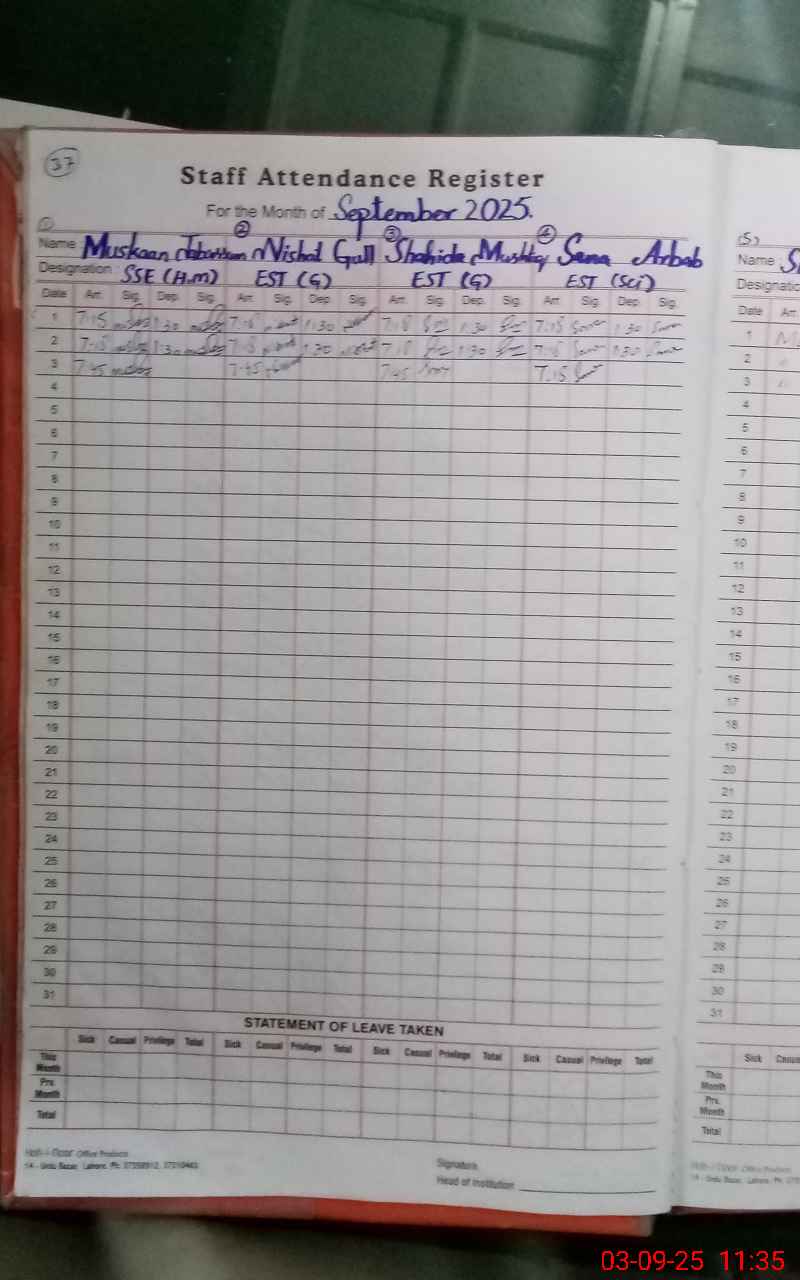 37
Staff Attendance Register
For the Month of September 2025.
① ② ③ ④
Name Muskaan Tabassum Nishat Gull Shahida Mushtaq Sana Arbab
Designation SSE (H.M) EST (G) EST (G) EST (Sci)
Date Arr. Sig. Dep. Sig. Arr. Sig. Dep. Sig. Arr. Sig. Dep. Sig. Arr. Sig. Dep. Sig.
1 7:15 1:30 7:15 1:30 7:15 1:30 7:15 1:30
2 7:15 1:30 7:15 1:30 7:15 1:30 7:15 1:30
3 7:45 7:45 7:45 7:15
4
5
6
7
8
9
10
11
12
13
14
15
16
17
18
19
20
21
22
23
24
25
26
27
28
29
30
31
STATEMENT OF LEAVE TAKEN
Sick Casual Privilege Total Sick Casual Privilege Total Sick Casual Privilege Total Sick Casual Privilege Total
This Month
Prv. Month
Total
Office Products
14 - Urdu Bazar, Lahore. Ph:
Signature
Head of Institution
(5)
Name :
Date Arr.
1
2
3
4
5
6
7
8
9
10
11
12
13
14
15
16
17
18
19
20
21
22
23
24
25
26
27
28
29
30
31
Sick
This Month
Prv. Month
Total
03-09-25 11:35